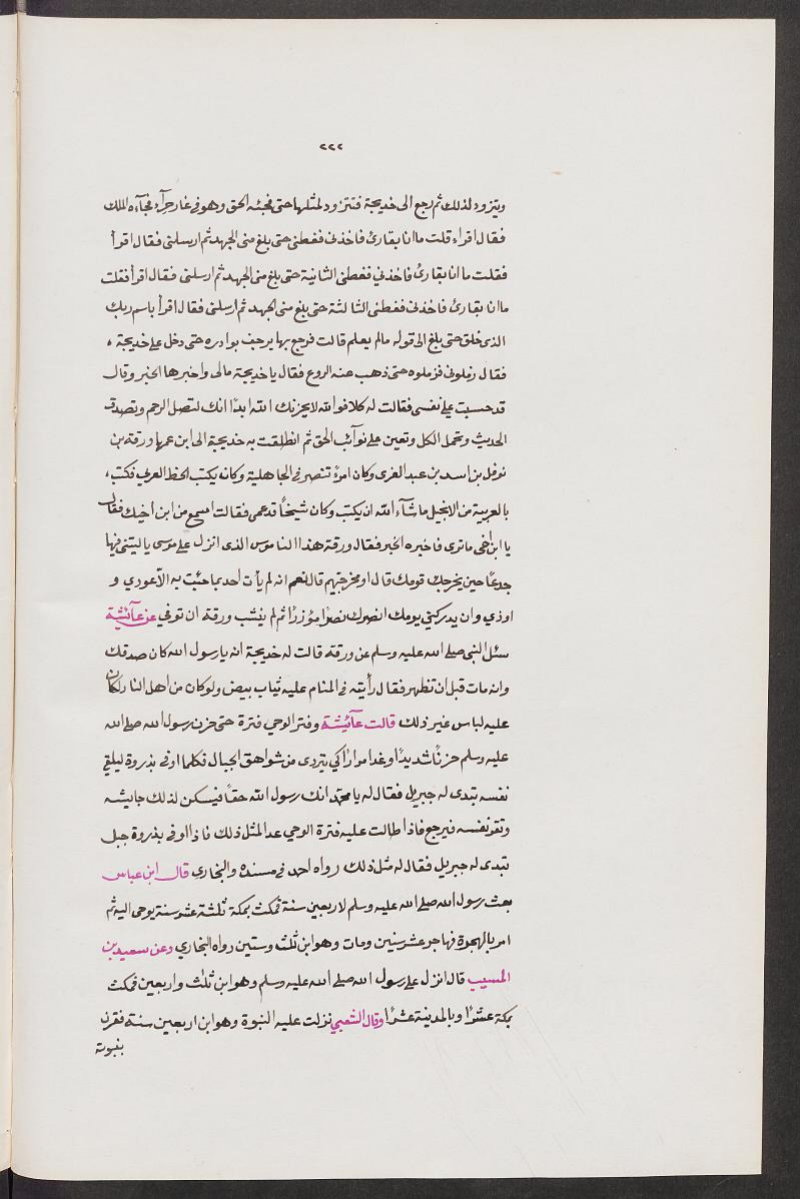 ٢٢٢
ويتزود لذلك ثم رجع الى خديجة فتزود لمثلها حتى فجئه الحق وهو في غار حرآء فجآءه الملك
فقال اقراء قلت ما انا بقارئ فاخذنى فغطنى حتى بلغ منى الجهد ثم ارسلنى فقال اقرأ
فقلت ما انا بقارئ فاخذني فغطنى الثانية حتى بلغ منى الجهد ثم ارسلنى فقال اقرأ فقلت
ما انا بقارئ فاخذنى فغطنى الثالثة حتى بلغ منى الجهد ثم ارسلنى فقال اقرأ باسم ربك
الذى خلق حتى بلغ الى قوله مالم يعلم قالت فرجع بها يرجف بوادره حتى دخل على خديجة ،
فقال زملونى فزملوه حتى ذهب عنه الروع فقال يا خديجة مالى واخبرها الخبر وقال
قد حسبت على نفسى فقالت له كلا فوالله لا يحزنك الله ابدًا انك لتصل الرحم وتصدق
الحديث وتحمل الكل وتعين على نوآئب الحق ثم انطلقت به خديجة الى ابن عمها ورقة بن
نوفل بن اسد بن عبد العزى وكان امرءٌ تنصر في الجاهلية وكان يكتب الخط العربي فكتب ،
بالعربية من الانجيل ما شآء الله ان يكتب وكان شيخًا قد عمى فقالت اسمع من ابن اخيك فقال
يا ابن اخى ماترى فاخبره الخبر فقال ورقة هذا الناموس الذى انزل على موسى يا ليتنى فيها
جدعًا حين يخرجك قومك قال او مخرجيّهم قال نعم انه لم يأت احد بما جئت به الا عودي و
اوذي وان يدركني يومك انصرك نصرًا مؤزرًا ثم لم ينشب ورقة ان توفي عن عآئشة
سئل النبى صلى الله عليه وسلم عن ورقة قالت له خديجة انه يا رسول الله كان صدقك
وانه مات قبل ان تظهر فقال رأيته في المنام عليه ثياب بيض ولو كان من اهل النار لكان
عليه لباس غير ذلك قالت عآئشة وفتر الوحي فترة حتى حزن رسول الله صلى الله
عليه وسلم حزنًا شديدًا وغدا مرارًا كي يتردى من شواهق الجبال فكلما اوفى بذروة ليلقي
نفسه تبدى له جبريل فقال له يا محمد انك رسول الله حقًا فيسكن لذلك جايشه
وتقر نفسه فيرجع فاذا طالت عليه فترة الوحي عد المثل ذلك فاذا اوفى بذروة جبل
تبدى له جبريل فقال له مثل ذلك رواه احمد في مسنده والبخاري قال ابن عباس
بعث رسول الله صلى الله عليه وسلم لاربعين سنة فمكث بمكة ثلثة عشر سنة يوحى اليه ثم
امر بالهجرة فهاجر عشر سنين ومات وهو ابن ثلث وستين رواه البخاري وعن سعيد بن
المسيب قال انزل على رسول الله صلى الله عليه وسلم وهو ابن ثلث واربعين فمكث
بمكة عشرًا وبالمدينة عشرًا وقال الشعبي نزلت عليه النبوة وهو ابن اربعين سنة فقرن
بنبوته